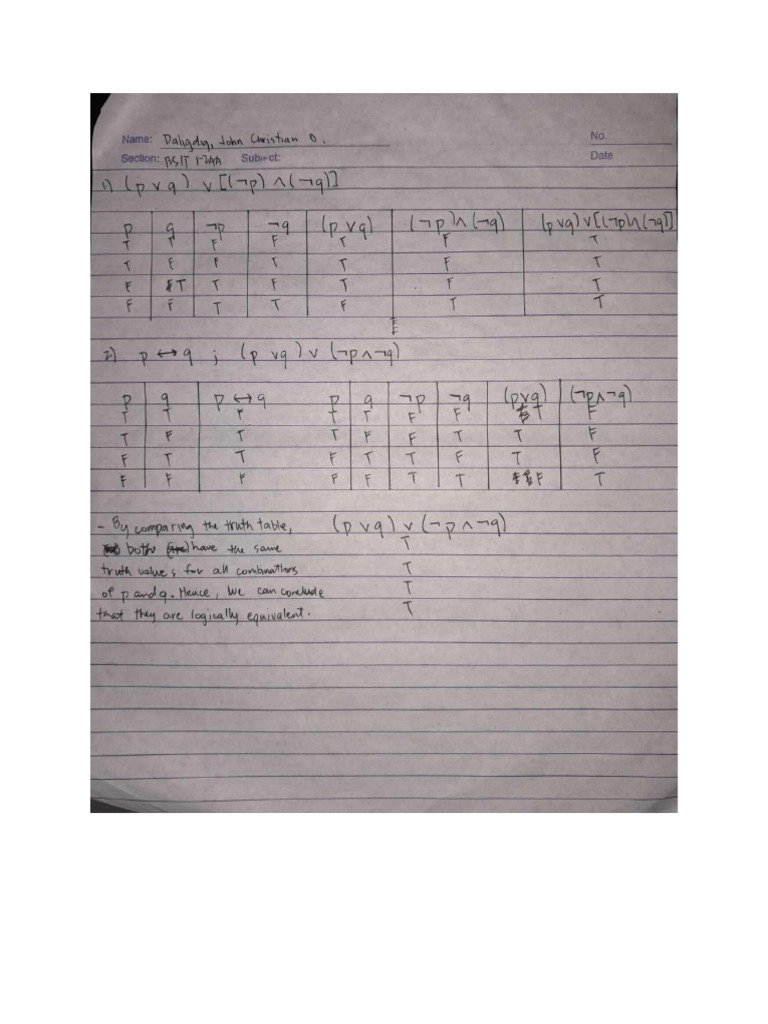 Name: Daligdig, John Christian O. No.
Section: BSIT 1-2AA Subject: Date
1) (p ∨ q) ∨ [(¬p) ∧ (¬q)]
p q ¬p ¬q (p ∨ q) (¬p) ∧ (¬q) (p∨q) ∨ [(¬p)∧(¬q)]
T T F F T F T
T F F T T F T
F T T F T F T
F F T T F T T
2) p ↔ q ; (p ∨ q) ∨ (¬p ∧ ¬q)
p q p ↔ q p q ¬p ¬q (p∨q) (¬p∧¬q)
T T F T T F F T F
T F T T F F T T F
F T T F T T F T F
F F F F F T T F T
- By comparing the truth table, (p ∨ q) ∨ (¬p ∧ ¬q)
both have the same T
truth values for all combinations T
of p and q. Hence, we can conclude T
that they are logically equivalent. T